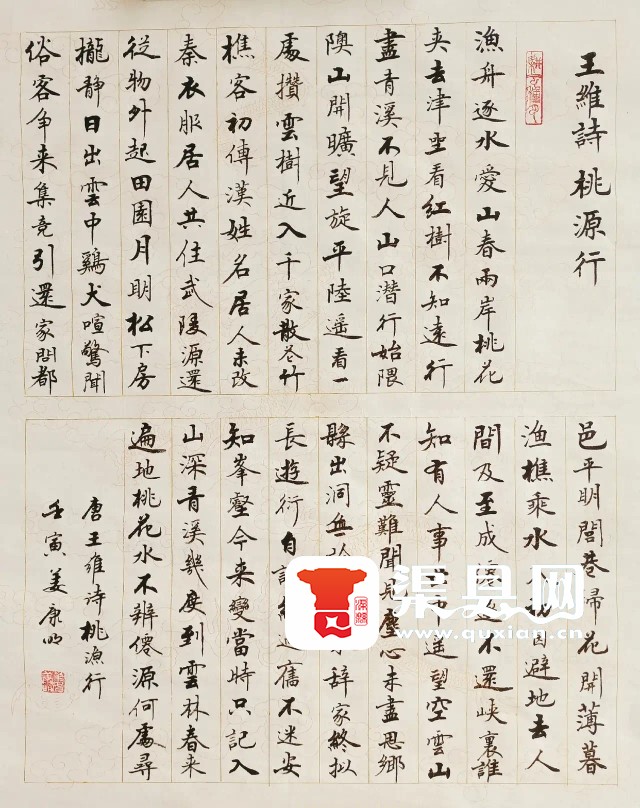 王維詩桃源行
漁舟逐水愛山春兩岸桃花
夹去津坐看紅樹不知遠行
盡青溪不見人山口潛行始隈
隩山開曠望旋平陸遥看一
處攢雲樹近入千家散花竹
樵客初傳漢姓名居人未改
秦衣服居人共住武陵源還
從物外起田園月明松下房
櫳静日出雲中鷄犬喧驚聞
俗客争来集竞引還家問都
邑平明閭巷掃花開薄暮
漁樵乘水入因避地去人
間及至成還不還峡裏誰
知有人事中遥望空雲山
不疑靈難聞見塵心未盡思鄉
縣出洞無辭家終拟
長遊衍自過舊不迷安
知峯壑今来變當時只記入
山深青溪幾度到雲林春来
遍地桃花水不辨僊源何處尋
唐王維诗桃漁行
壬寅姜康明
渠县网
www.quxian.cn